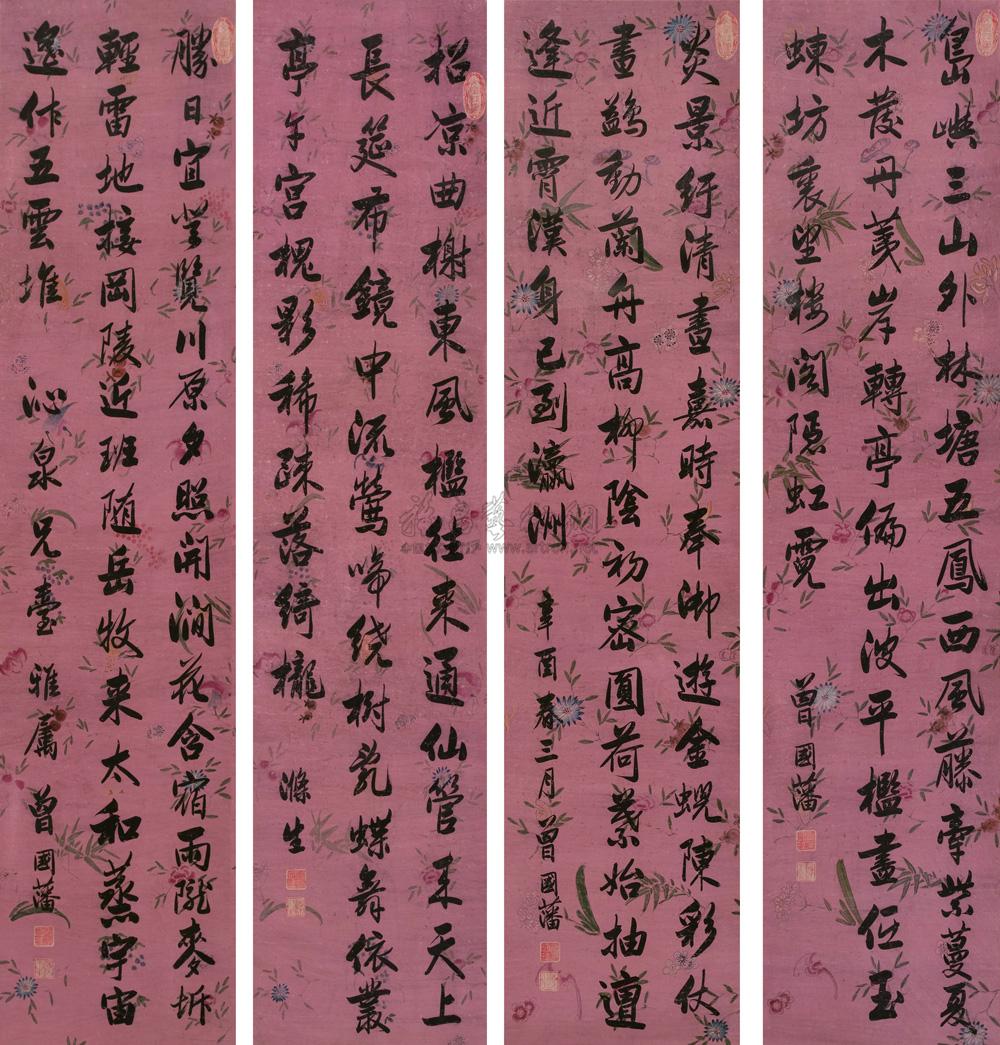 島嶼三山外林塘五鳳西風藤牽紫蔓夏
木發丹荑岸轉亭偏出波平檻盡低玉
蝀坊裏望樓閣隱虹霓
曾國藩
炎景紆清晝嘉時奉御遊金蜺陳彩仗
畫鷁動蘭舟高柳陰初密圓荷葉始抽
逢近霄漢身已到瀛洲
辛酉春三月曾國藩
招凉曲榭東風檻往來通仙管來天上
長筵布鏡中流鶯啼繞樹乳蝶舞依叢
亭午宮槐影稀疎落綺櫳
滌生
勝日宜登覽川原夕照開澗花含宿雨隴麥坼
輕雷地接岡陵近班随岳牧来太和蒸宇宙
遙作五雲堆
沁泉兄臺雅属
曾國藩